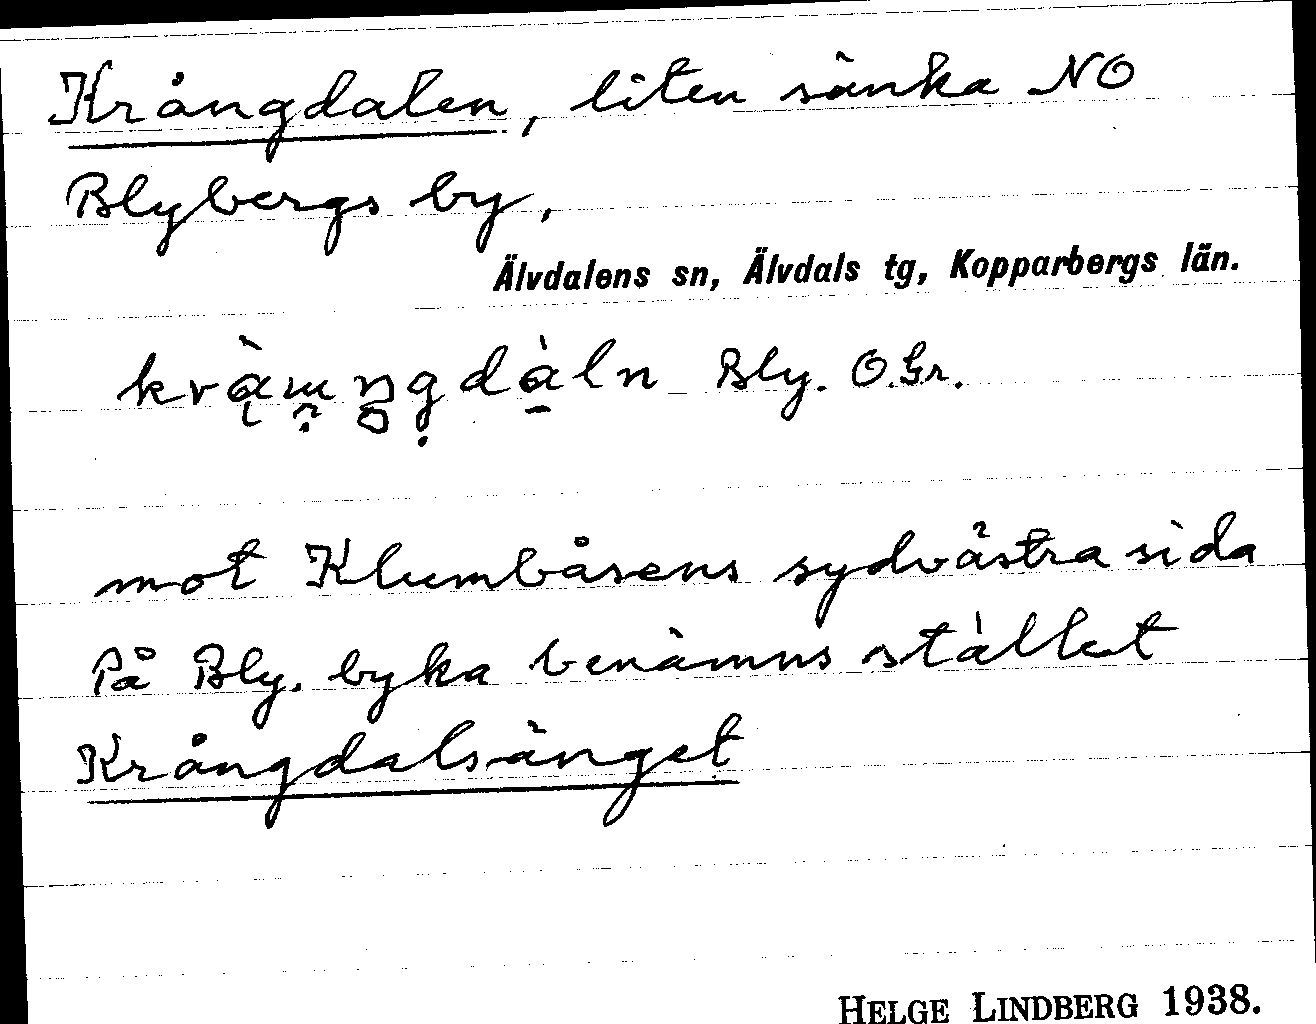 Krångdalen, liten sänka NO
Blybergs by,
Älvdalens sn, Älvdals tg, Kopparbergs län.
Bly. O.Gr.
mot Klumbåsens sydvästra sida
På Bly. byka benämns stället
Krångdalsänget
HELGE LINDBERG 1938.